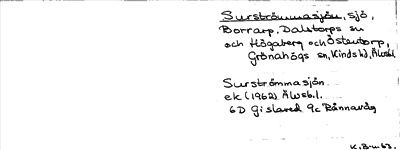 Surströmmasjön, sjö,
Borrarp, Dalstorps sn
och Högaberg och Östentorp,
Grönahögs sn, Kinds hd, Älvsb.l.
Surströmmasjön
ek (1962) Älvsb.l.
6D Gislaved 9c Rännavåg
K.B-m 63.